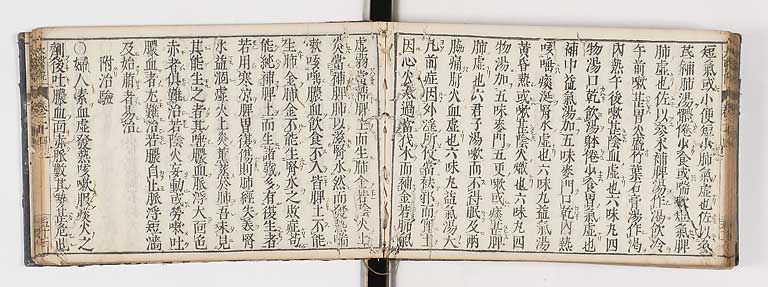 短氣或小便短少肺氣虛也佐以參
芪補肺湯體倦少食或喘嗽短氣脾
肺虛也佐以參朮補脾湯作渴飲冷
午前嗽甚胃火盛竹葉石膏湯作渴
內熱午後嗽甚陰血虛也六味丸四
物湯口乾飲湯躰倦少食胃氣虛也
補中益氣湯加五味麥門口乾內熱
咳唾痰涎腎水虛也六味丸益氣湯
黃昏熱或嗽甚陰火熾也六味丸四
物湯加五味麥門五更嗽或痰甚脾
虛也六君子湯嗽而不得臥及兩
脇痛肝火血虛也六味丸益氣湯大
凡前症因外邪所侵當祛邪而實土
因心火太過當伐木而補金若肺氣
虛弱當補脾土而生肺金若陰火上
炎當補脾肺以滋腎水然而發熱喘
嗽咳唾膿血飲食不入皆脾土不能
生肺金肺金不能生腎水之敗症苟
能純補脾土而生諸藏多有復生者
若用寒凉脾胃復傷則肺經失養腎
水益涸虛火上炎薰蒸於肺吾未見
其能生之者其唾膿血脈浮大面色
赤者俱難治若陰火妄動或勞嗽吐
膿血者尤難治若膿自止脈浮短濇
及始萠者易治
附治驗
○婦人素血虛發熱咳嗽服痰火之
劑後吐膿血面赤脈數其勢甚危也